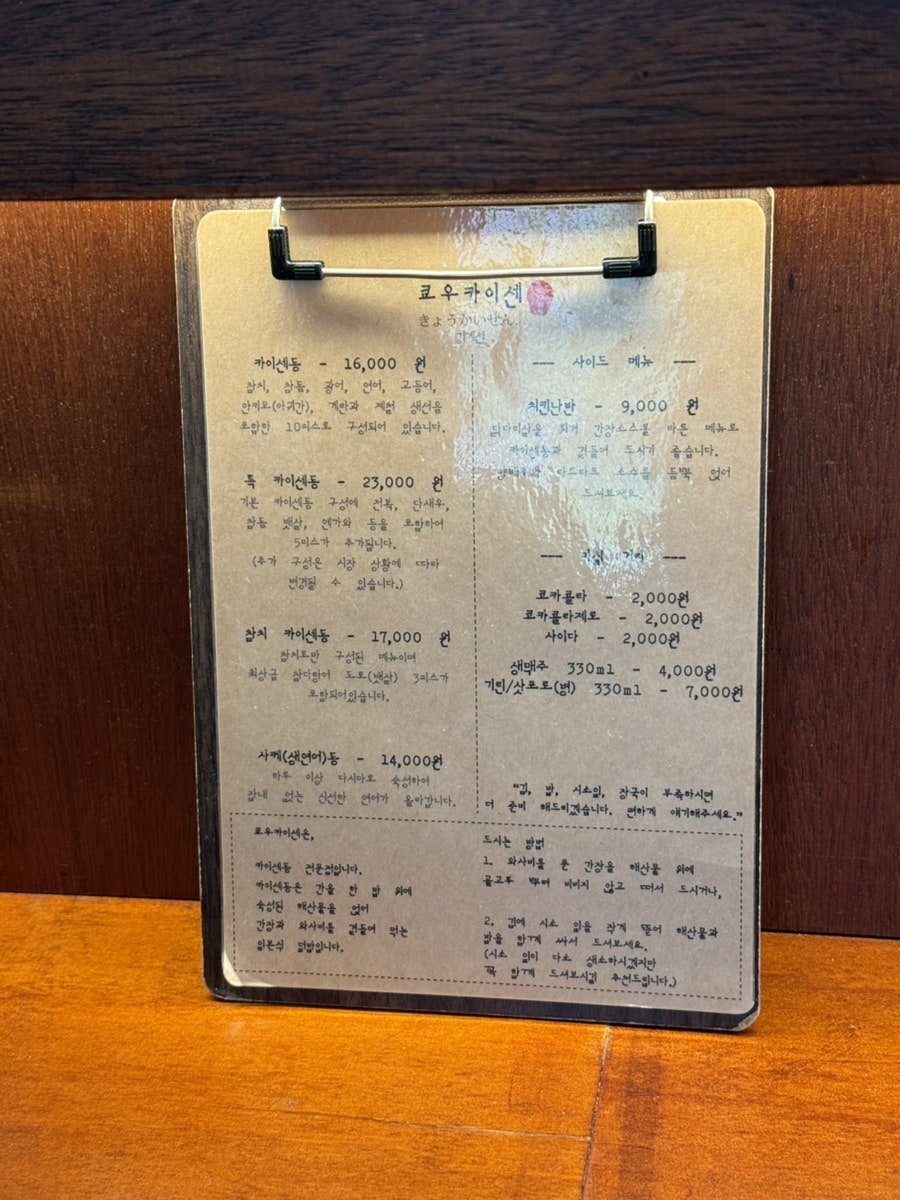 쿄우카이센
きょうかいせん
카이센동 - 16,000 원
참치, 참돔, 광어, 연어, 고등어,
안키모(아귀간), 계란과 제철 생선을
포함한 10피스로 구성되어 있습니다.
특 카이센동 - 23,000 원
기본 카이센동 구성에 전복, 단새우,
참돔 뱃살, 엔가와 등을 포함하여
5피스가 추가됩니다.
(추가 구성은 시장 상황에 따라
변경될 수 있습니다.)
참치 카이센동 - 17,000 원
참치로만 구성된 메뉴이며
최상급 참다랑어 도로(뱃살) 3피스가
포함되어있습니다.
사케(생연어)동 - 14,000원
하루 이상 다시마로 숙성하여
잡내 없는 신선한 연어가 올라갑니다.
--- 사이드 메뉴 ---
치킨난반 - 9,000 원
닭다리살을 튀겨 간장소스를 바른 메뉴로
카이센동과 곁들여 드시기 좋습니다.
양배추와 타르타르 소스를 듬뿍 얹어
드셔보세요
코카콜라 - 2,000원
코카콜라제로 - 2,000원
사이다 - 2,000원
생맥주 330ml - 4,000원
기린/삿포로(병) 330ml - 7,000원
"김, 밥, 시소잎, 장국이 부족하시면
더 준비 해드리겠습니다. 편하게 얘기해주세요."
쿄우카이센은,
카이센동 전문점입니다.
카이센동은 간을 한 밥 위에
숙성된 해산물을 얹어
간장과 와사비를 곁들여 먹는
일본식 덮밥입니다.
드시는 방법
1. 와사비를 푼 간장을 해산물 위에
골고루 뿌려 비비지 않고 떠서 드시거나,
2. 김에 시소 잎을 작게 뜯어 해산물과
밥을 함께 싸서 드셔보세요.
(시소 잎이 다소 생소하시겠지만
꼭 함께 드셔보시길 추천드립니다.)